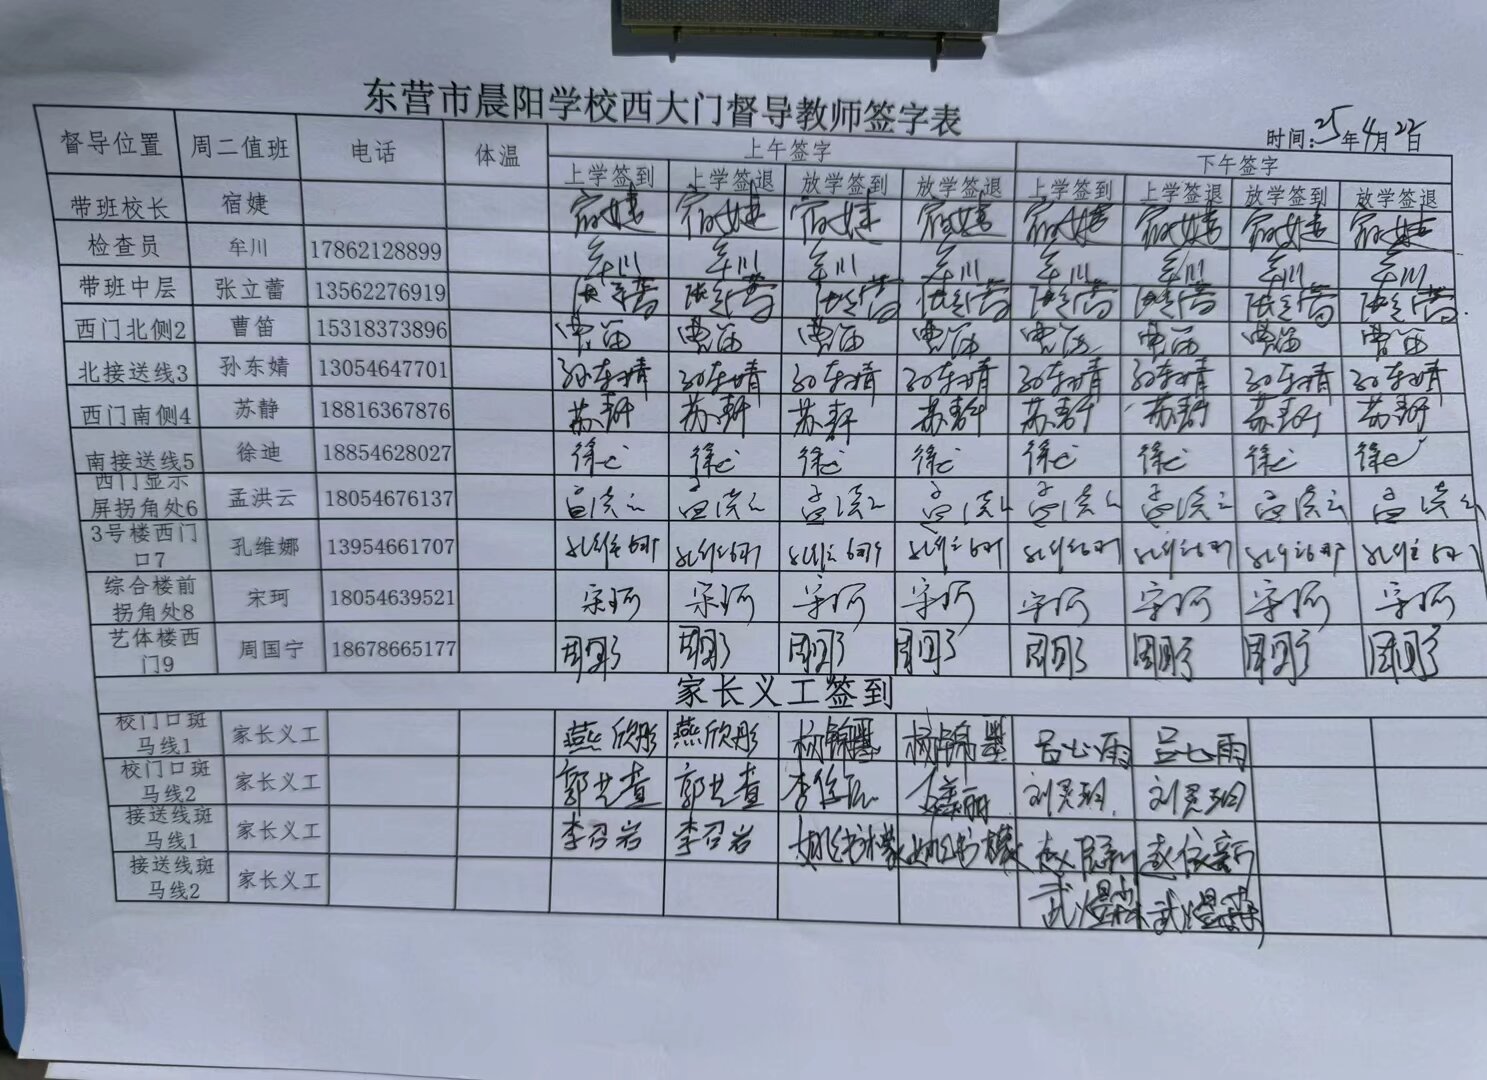 东营市晨阳学校西大门督导教师签字表
时间:25年4月22日
督导位置 周二值班 电话 体温 上午签字 下午签字
上学签到 上学签退 放学签到 放学签退 上学签到 上学签退 放学签到 放学签退
带班校长 宿婕 宿婕 宿婕 宿婕 宿婕 宿婕 宿婕 宿婕 宿婕
检查员 牟川 17862128899 牟川 牟川 牟川 牟川 牟川 牟川 牟川 牟川
带班中层 张立蕾 13562276919 张立蕾 张立蕾 张立蕾 张立蕾 张立蕾 张立蕾 张立蕾 张立蕾
西门北侧2 曹笛 15318373896 曹笛 曹笛 曹笛 曹笛 曹笛 曹笛 曹笛 曹笛
北接送线3 孙东婧 13054647701 孙东婧 孙东婧 孙东婧 孙东婧 孙东婧 孙东婧 孙东婧 孙东婧
西门南侧4 苏静 18816367876 苏静 苏静 苏静 苏静 苏静 苏静 苏静 苏静
南接送线5 徐迪 18854628027 徐迪 徐迪 徐迪 徐迪 徐迪 徐迪 徐迪 徐迪
西门显示
屏拐角处6 孟洪云 18054676137 孟洪云 孟洪云 孟洪云 孟洪云 孟洪云 孟洪云 孟洪云 孟洪云
3号楼西门
口7 孔维娜 13954661707 孔维娜 孔维娜 孔维娜 孔维娜 孔维娜 孔维娜 孔维娜 孔维娜
综合楼前
拐角处8 宋珂 18054639521 宋珂 宋珂 宋珂 宋珂 宋珂 宋珂 宋珂 宋珂
艺体楼西
门9 周国宁 18678665177 周国宁 周国宁 周国宁 周国宁 周国宁 周国宁 周国宁 周国宁
家长义工签到
校门口斑
马线1 家长义工 燕欣彤 燕欣彤 杨锦墨 杨锦墨 吕心雨 吕心雨
校门口斑
马线2 家长义工 郭 郭 李 刘 刘
接送线斑
马线1 家长义工 李召岩 李召岩 姚 姚 赵 赵依新
接送线斑
马线2 家长义工 武煜霖 武煜霖